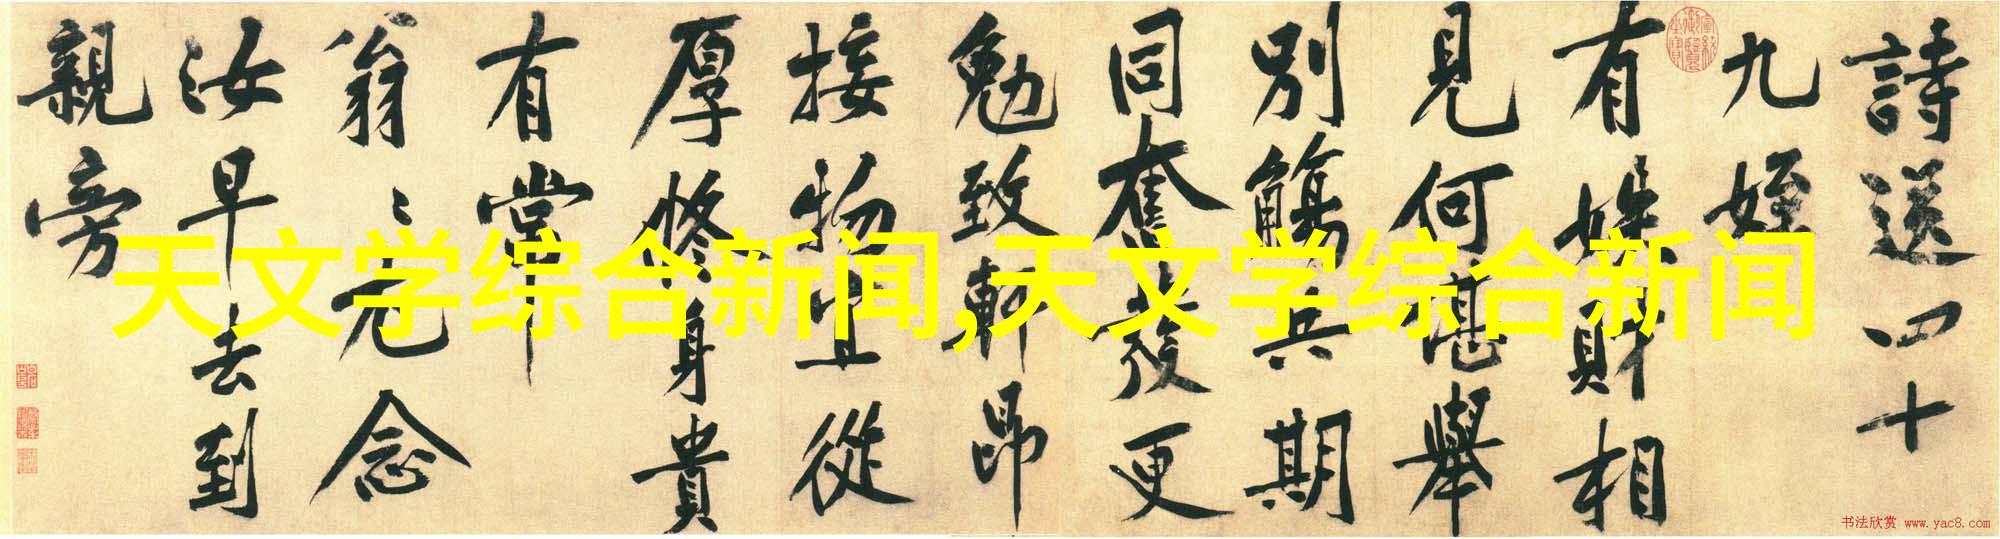 詩送四十
九姪
有姓財相
見何堪舉
別觴共期
同奮發更
勉致軒昂
接物宜從
厚修身貴
有常
翁〻尤念
汝早去到
親旁
天文学综合新闻,天文学综合新闻
书法欣赏 www.yac8.com